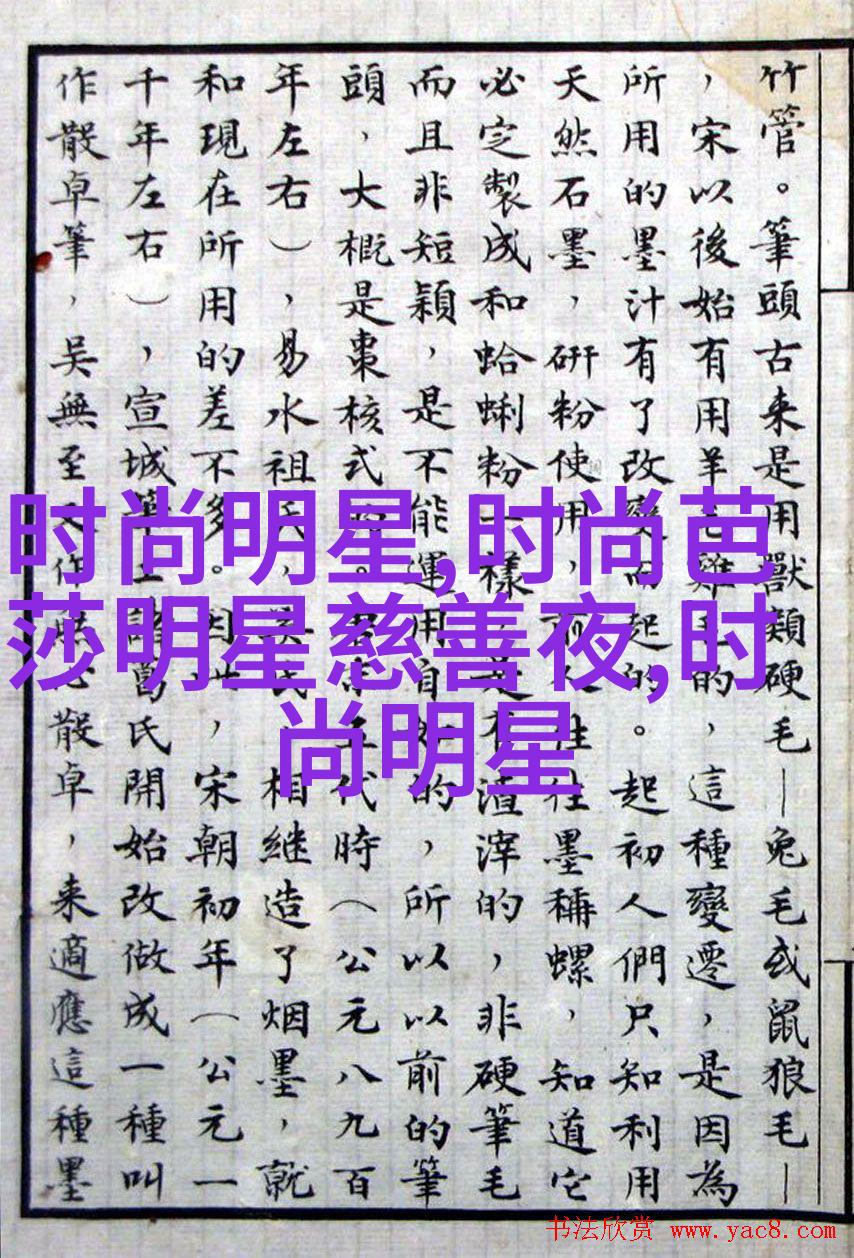 竹管。筆頭古来是用獸類硬毛—兔毛或鼠狼毛—
，宋以後始有用羊毛雞毛的，這種變遷，是因為
所用的墨汁有了改變而起的。起初人們只知利用
天然石墨，研粉使用，而往往墨稱螺，知道它
必定製成和蛤蜊粉一樣，是有渣滓的，非硬筆毛
而且非短穎，是不能運用自如的，所以以前的筆
頭，大概是棗核式的。五代時（公元八九百
年左右），易水祖氏、奚氏，相継造了烟墨，就
和現在所用的差不多。因此，宋朝初年（公元一
千年左右），宣城筆工諸葛氏開始改做成一種叫
作散卓筆，吴無至又作無心散卓，来適應這種墨
时尚明星,时尚芭
莎明星慈善夜,时
尚明星
书法欣赏 www.yac8.com